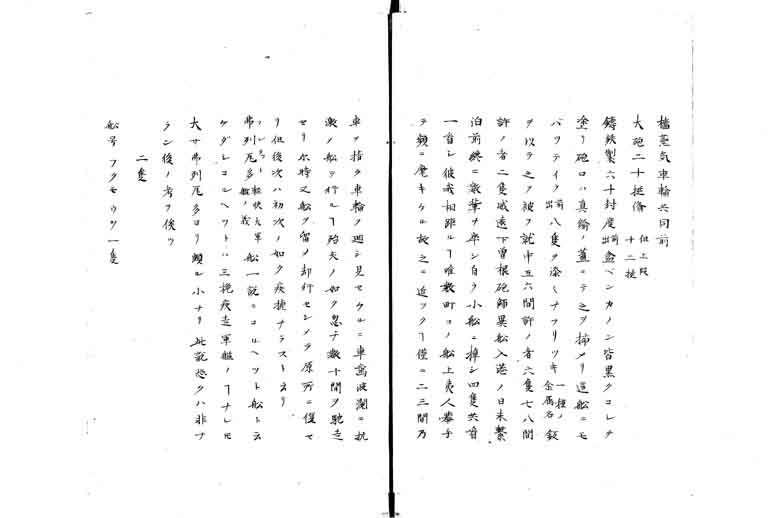 檣蒸気車輪共同前
大砲二十挺備 但上段十二挺
鋳鉄製六十封度 前出 盆ベンカノン皆黒クコレテ
塗リ砲口ハ真鍮ノ蓋ニテ之ヲ挿メリ這船ニモ
バツテイク 前出 八隻ヲ漆ミナフリツキ 一種ノ金属名 鈑
ヲ以テ之ヲ被ヲ就中五六間許ノ者六隻七八間
許ノ者二隻 遠下曽根砲師異船入港ノ日未繋
泊前 衆輩ヲ率シ自ラ小船ニ棹シ四隻共
一 シ彼我相距ルヿ唯数町コノ船上夷人挙手
テ頻ニ麾キケル故之ニ近ツクヿ僅ニ二三間乃
車ヲ指ヲ車輪ヲ廻シ見セケルニ車 波瀾ニ抗
激ノ船ヲ行ルヿ殆矢ノ如ク忽チ数十間ヲ馳走
セリ尓時又船ヲ留メ却行セシメテ原所ニ復セ
リ但後次ハ初次ノ如ク疾捷ナラスト云リ
弗列尼多 フレガット軽快大軍艦ノ義 船一説ニコルヘツト船ト云
ケダレコルヘツトハ三桅疾走軍艦ノヿナレモ
大サ弗列尼多ヨリ頗ル小ナリ此説恐クハ非ナ
ラン後ノ考ヲ俟ツ
二隻
船号フクモウツ一隻